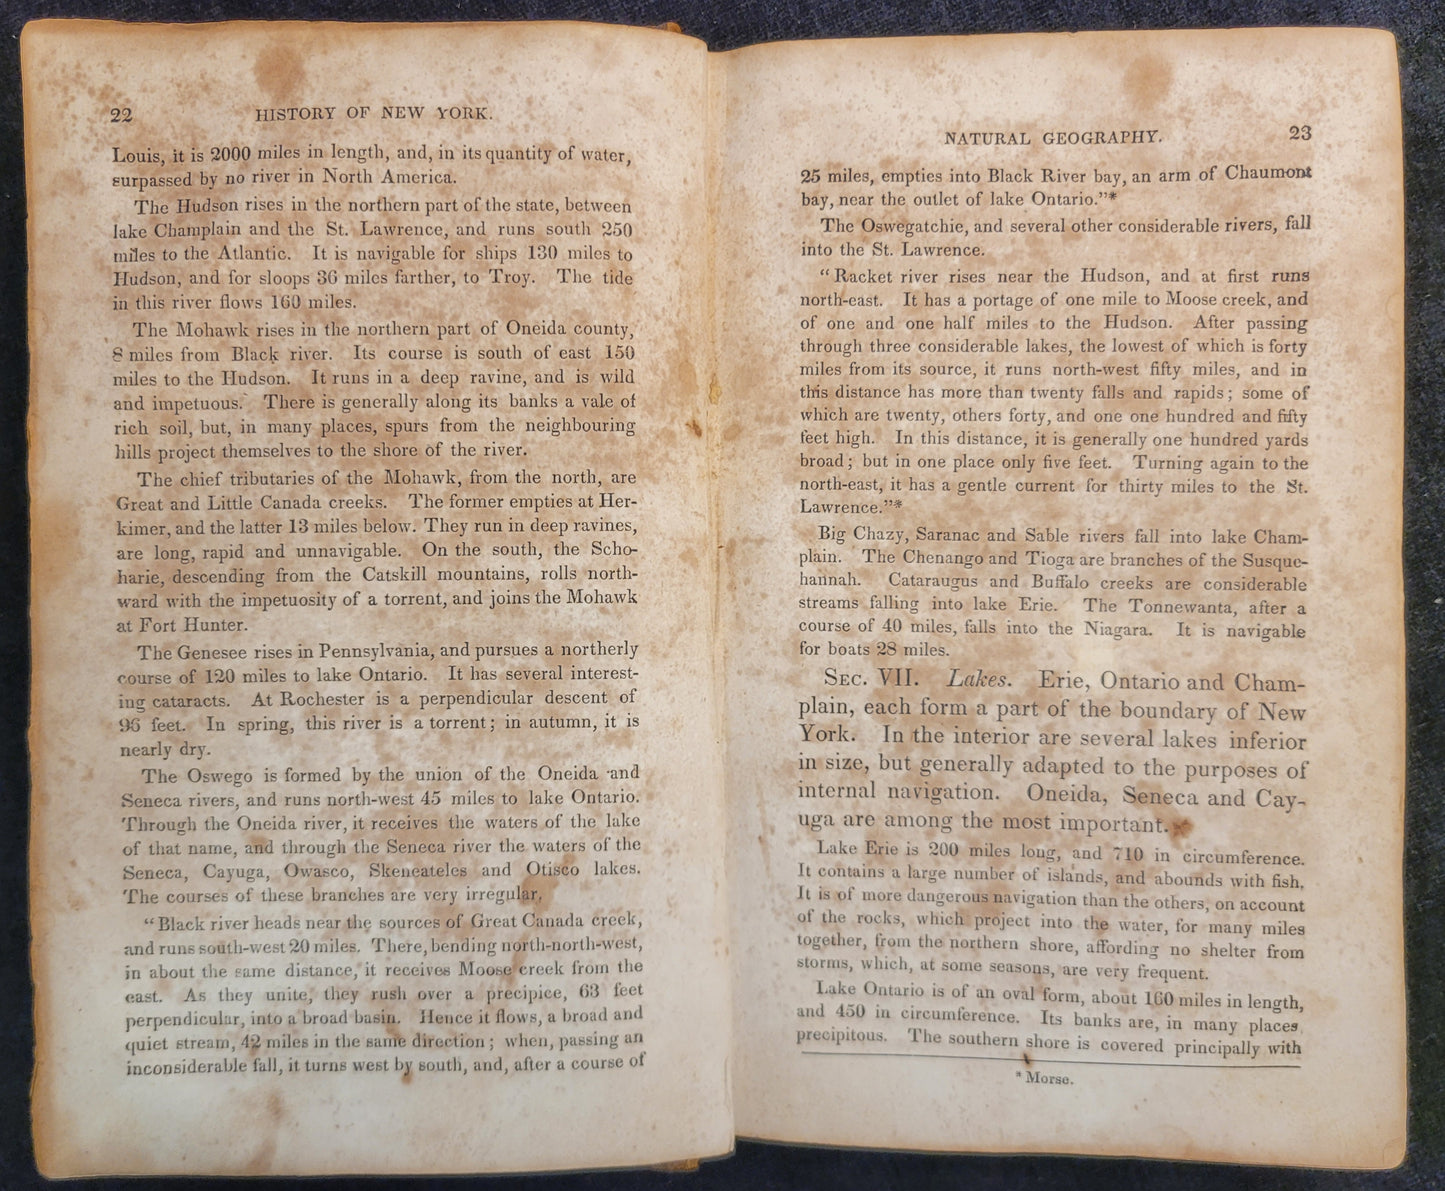 22 HISTORY OF NEW YORK.
Louis, it is 2000 miles in length, and, in its quantity of water,
surpassed by no river in North America.
The Hudson rises in the northern part of the state, between
lake Champlain and the St. Lawrence, and runs south 250
miles to the Atlantic. It is navigable for ships 130 miles to
Hudson, and for sloops 36 miles farther, to Troy. The tide
in this river flows 160 miles.
The Mohawk rises in the northern part of Oneida county,
8 miles from Black river. Its course is south of east 150
miles to the Hudson. It runs in a deep ravine, and is wild
and impetuous. There is generally along its banks a vale of
rich soil, but, in many places, spurs from the neighbouring
hills project themselves to the shore of the river.
The chief tributaries of the Mohawk, from the north, are
Great and Little Canada creeks. The former empties at Her-
kimer, and the latter 13 miles below. They run in deep ravines,
are long, rapid and unnavigable. On the south, the Scho-
harie, descending from the Catskill mountains, rolls north-
ward with the impetuosity of a torrent, and joins the Mohawk
at Fort Hunter.
The Genesee rises in Pennsylvania, and pursues a northerly
course of 120 miles to lake Ontario. It has several interest-
ing cataracts. At Rochester is a perpendicular descent of
96 feet. In spring, this river is a torrent; in autumn, it is
nearly dry.
The Oswego is formed by the union of the Oneida and
Seneca rivers, and runs north-west 45 miles to lake Ontario.
Through the Oneida river, it receives the waters of the lake
of that name, and through the Seneca river the waters of the
Seneca, Cayuga, Owasco, Skeneateles and Otisco lakes.
The courses of these branches are very irregular.
"Black river heads near the sources of Great Canada creek,
and runs south-west 20 miles. There, bending north-north-west,
in about the same distance, it receives Moose creek from the
east. As they unite, they rush over a precipice, 63 feet
perpendicular, into a broad basin. Hence it flows, a broad and
quiet stream, 42 miles in the same direction; when, passing an
inconsiderable fall, it turns west by south, and, after a course of
NATURAL GEOGRAPHY. 23
25 miles, empties into Black River bay, an arm of Chaumont
bay, near the outlet of lake Ontario."*
The Oswegatchie, and several other considerable rivers, fall
into the St. Lawrence.
"Racket river rises near the Hudson, and at first runs
north-east. It has a portage of one mile to Moose creek, and
of one and one half miles to the Hudson. After passing
through three considerable lakes, the lowest of which is forty
miles from its source, it runs north-west fifty miles, and in
this distance has more than twenty falls and rapids; some of
which are twenty, others forty, and one one hundred and fifty
feet high. In this distance, it is generally one hundred yards
broad; but in one place only five feet. Turning again to the
north-east, it has a gentle current for thirty miles to the St.
Lawrence."*
Big Chazy, Saranac and Sable rivers fall into lake Cham-
plain. The Chenango and Tioga are branches of the Susque-
hannah. Cataraugus and Buffalo creeks are considerable
streams falling into lake Erie. The Tonnewanta, after a
course of 40 miles, falls into the Niagara. It is navigable
for boats 28 miles.
SEC. VII. Lakes. Erie, Ontario and Cham-
plain, each form a part of the boundary of New
York. In the interior are several lakes inferior
in size, but generally adapted to the purposes of
internal navigation. Oneida, Seneca and Cay-
uga are among the most important.
Lake Erie is 200 miles long, and 710 in circumference.
It contains a large number of islands, and abounds with fish.
It is of more dangerous navigation than the others, on account
of the rocks, which project into the water, for many miles
together, from the northern shore, affording no shelter from
storms, which, at some seasons, are very frequent.
Lake Ontario is of an oval form, about 160 miles in length,
and 450 in circumference. Its banks are, in many places,
precipitous. The southern shore is covered principally with
* Morse.